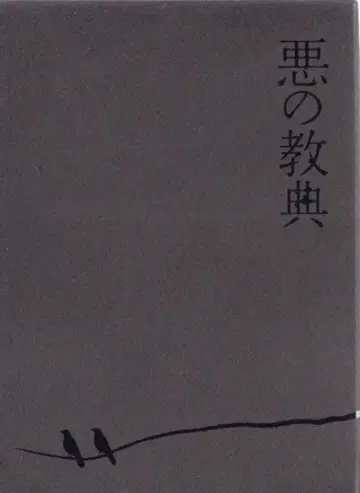 悪の教典